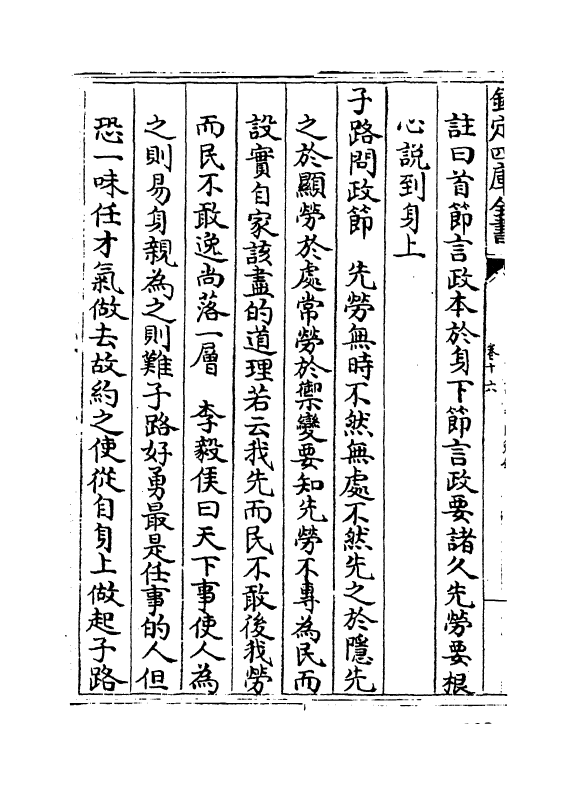 欽定四庫全書
卷十六
註曰首節言政本於身下節言政要諸久先勞要根
心説到身上
子路問政節　先勞無時不然無處不然先之於隱先
之於顯勞於處常勞於禦變要知先勞不專為民而
設實自家該盡的道理若云我先而民不敢後我勞
而民不敢逸尚落一層　李毅侯曰天下事使人為
之則易身親為之則難子路好勇最是任事的人但
恐一味任才氣做去故約之使從自身上做起子路